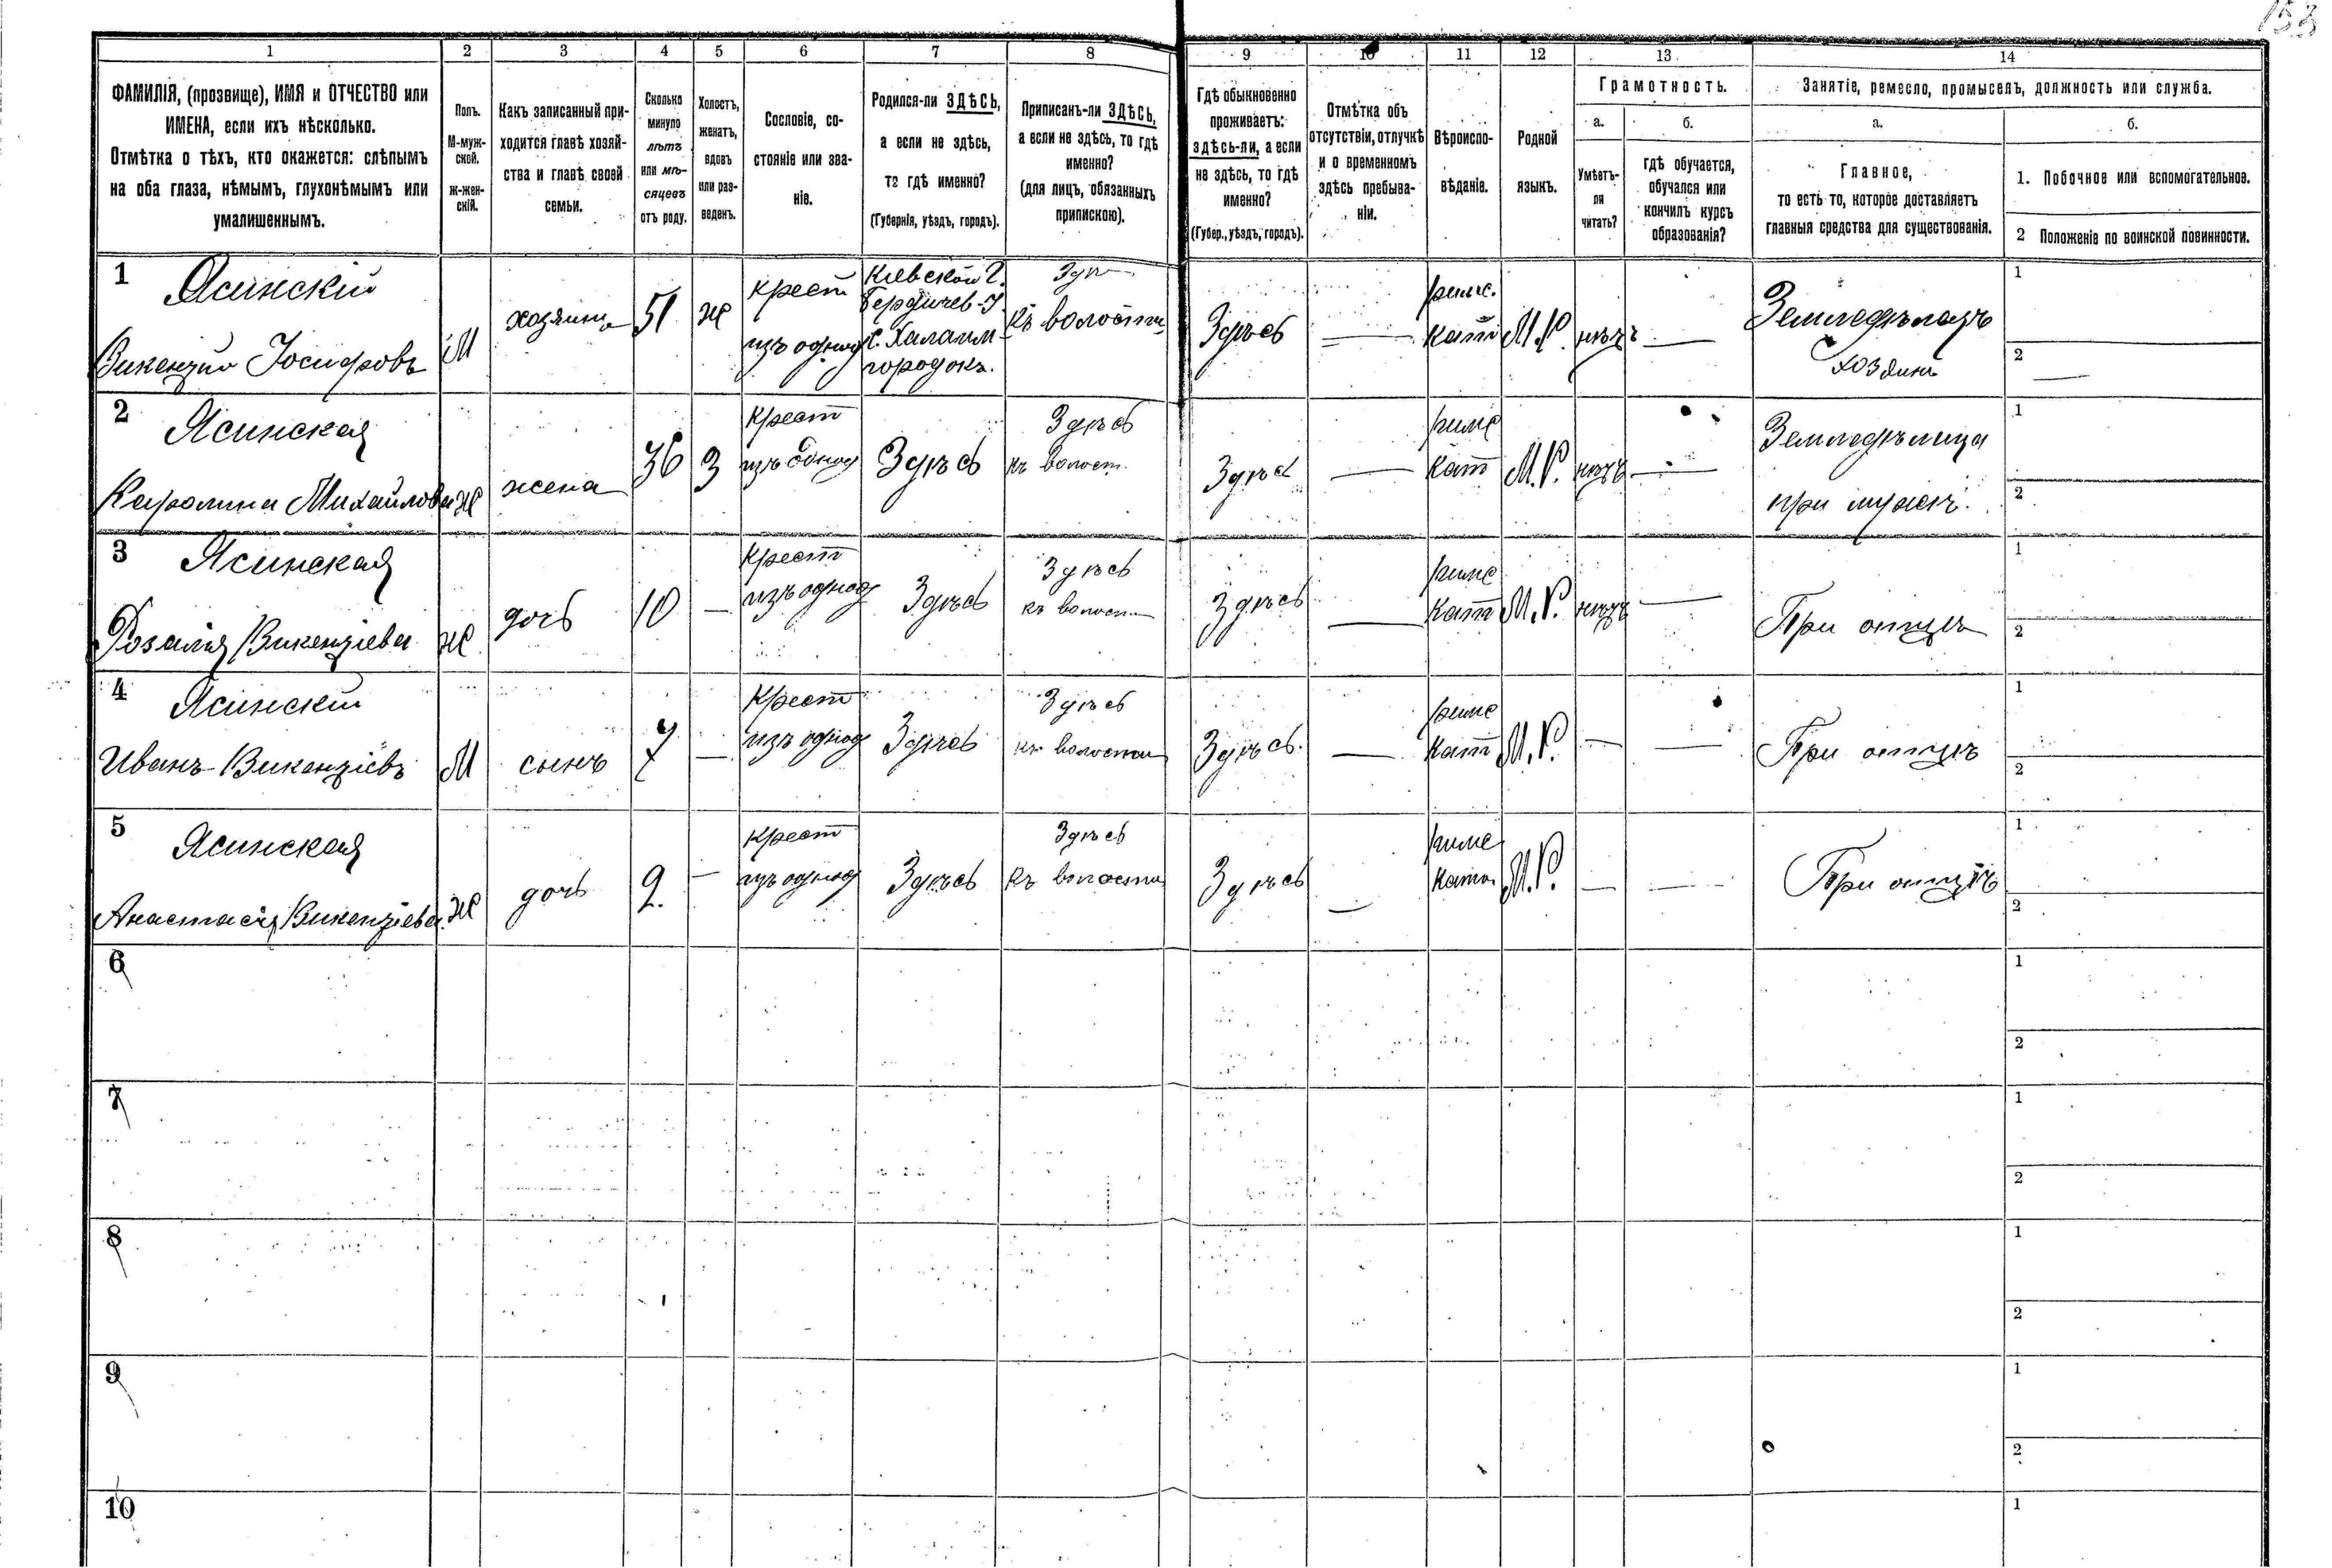 153
1 2 3 4 5 6 7 8 9 10 11 12 13 14
ФАМИЛІЯ, (прозвище), ИМЯ и ОТЧЕСТВО или
ИМЕНА, если ихъ нѣсколько.
Отмѣтка о тѣхъ, кто окажется: слѣпымъ
на оба глаза, нѣмымъ, глухонѣмымъ или
умалишеннымъ.
Полъ.
М-муж-
ской.
Ж-жен-
скій.
Какъ записанный при-
ходится главѣ хозяй-
ства и главѣ своей
семьи.
Сколько
минуло
лѣтъ
или мѣ-
сяцевъ
отъ роду.
Холостъ,
женатъ,
вдовъ
или раз-
веденъ.
Сословіе, со-
стояніе или зва-
ніе.
Родился-ли ЗДѢСЬ,
а если не здѣсь,
то гдѣ именно?
(Губернія, уѣздъ, городъ).
Приписанъ-ли ЗДѢСЬ,
а если не здѣсь, то гдѣ
именно?
(для лицъ, обязанныхъ
припискою).
Гдѣ обыкновенно
проживаетъ:
здѣсь-ли, а если
не здѣсь, то гдѣ
именно?
(Губер., уѣздъ, городъ).
Отмѣтка объ
отсутствіи, отлучкѣ
и о временномъ
здѣсь пребыва-
ніи.
Вѣроиспо-
вѣданіе.
Родной
языкъ.
Грамотность.
а.
Умѣетъ-
ли
читать?
б.
гдѣ обучается,
обучался или
кончилъ курсъ
образованія?
Занятіе, ремесло, промыселъ, должность или служба.
а.
Главное,
то есть то, которое доставляетъ
главныя средства для существованія.
б.
1. Побочное или вспомогательное.
2 Положеніе по воинской повинности.
1
Ясинскій
Викентій Іосифовъ
М
хозяинъ
51
ж
крест
изъ однод
Кіевской Г.
Бердичев. У.
городокъ.
къ волости
Здѣсь
римс.
кат
М.Р.
нѣтъ
Земледѣлецъ
хозяинъ
1
2
2
Ясинская
Каролина Михайлова
ж
жена
36
З
крест
изъ однод
Здѣсь
Здѣсь
къ волост.
Здѣсь
римс
кат
М.Р.
нѣтъ
Земледѣлица
при мужѣ.
1
2
3
Ясинская
Розалія Викентіева
ж
дочь
10
—
крест
изъ однод
Здѣсь
Здѣсь
къ волости
Здѣсь
римс
кат
М.Р.
нѣтъ
При отцѣ
1
2
4
Ясинскій
Иванъ Викентіевъ
М
сынъ
7
—
крест
изъ однод
Здѣсь
Здѣсь
къ волости
Здѣсь.
—
римс
кат
М.Р.
—
—
При отцѣ
1
2
5
Ясинская
Анастасія Викентіева
ж
дочь
2.
—
крест
изъ однод
Здѣсь
Здѣсь
къ волости
Здѣсь
—
римс
като
М.Р.
—
—
При отцѣ
1
2
6
1
2
7
1
2
8
1
2
9
1
2
10
1